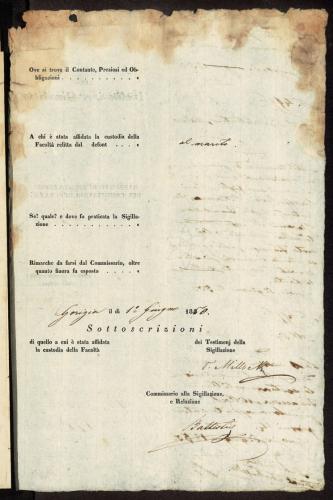 Ove si trova il Contante, Preziosi ed Ob-
bligazioni . . . .
A chi è stata affidata la custodia della
Facoltà relitta dal defont . . . .
al marito.
Se? quale? e dove fu praticata la Sigilla-
zione . . . .
Rimarche da farsi dal Commissario, oltre
quanto finora fu esposto . . . .
Gorizia li 12 Giugno 1850.
Sottoscrizioni
di quello a cui è stata affidata
la custodia della Facoltà
dei Testimonj della
Sigillazione
Commissario alla Sigillazione,
e Relazione